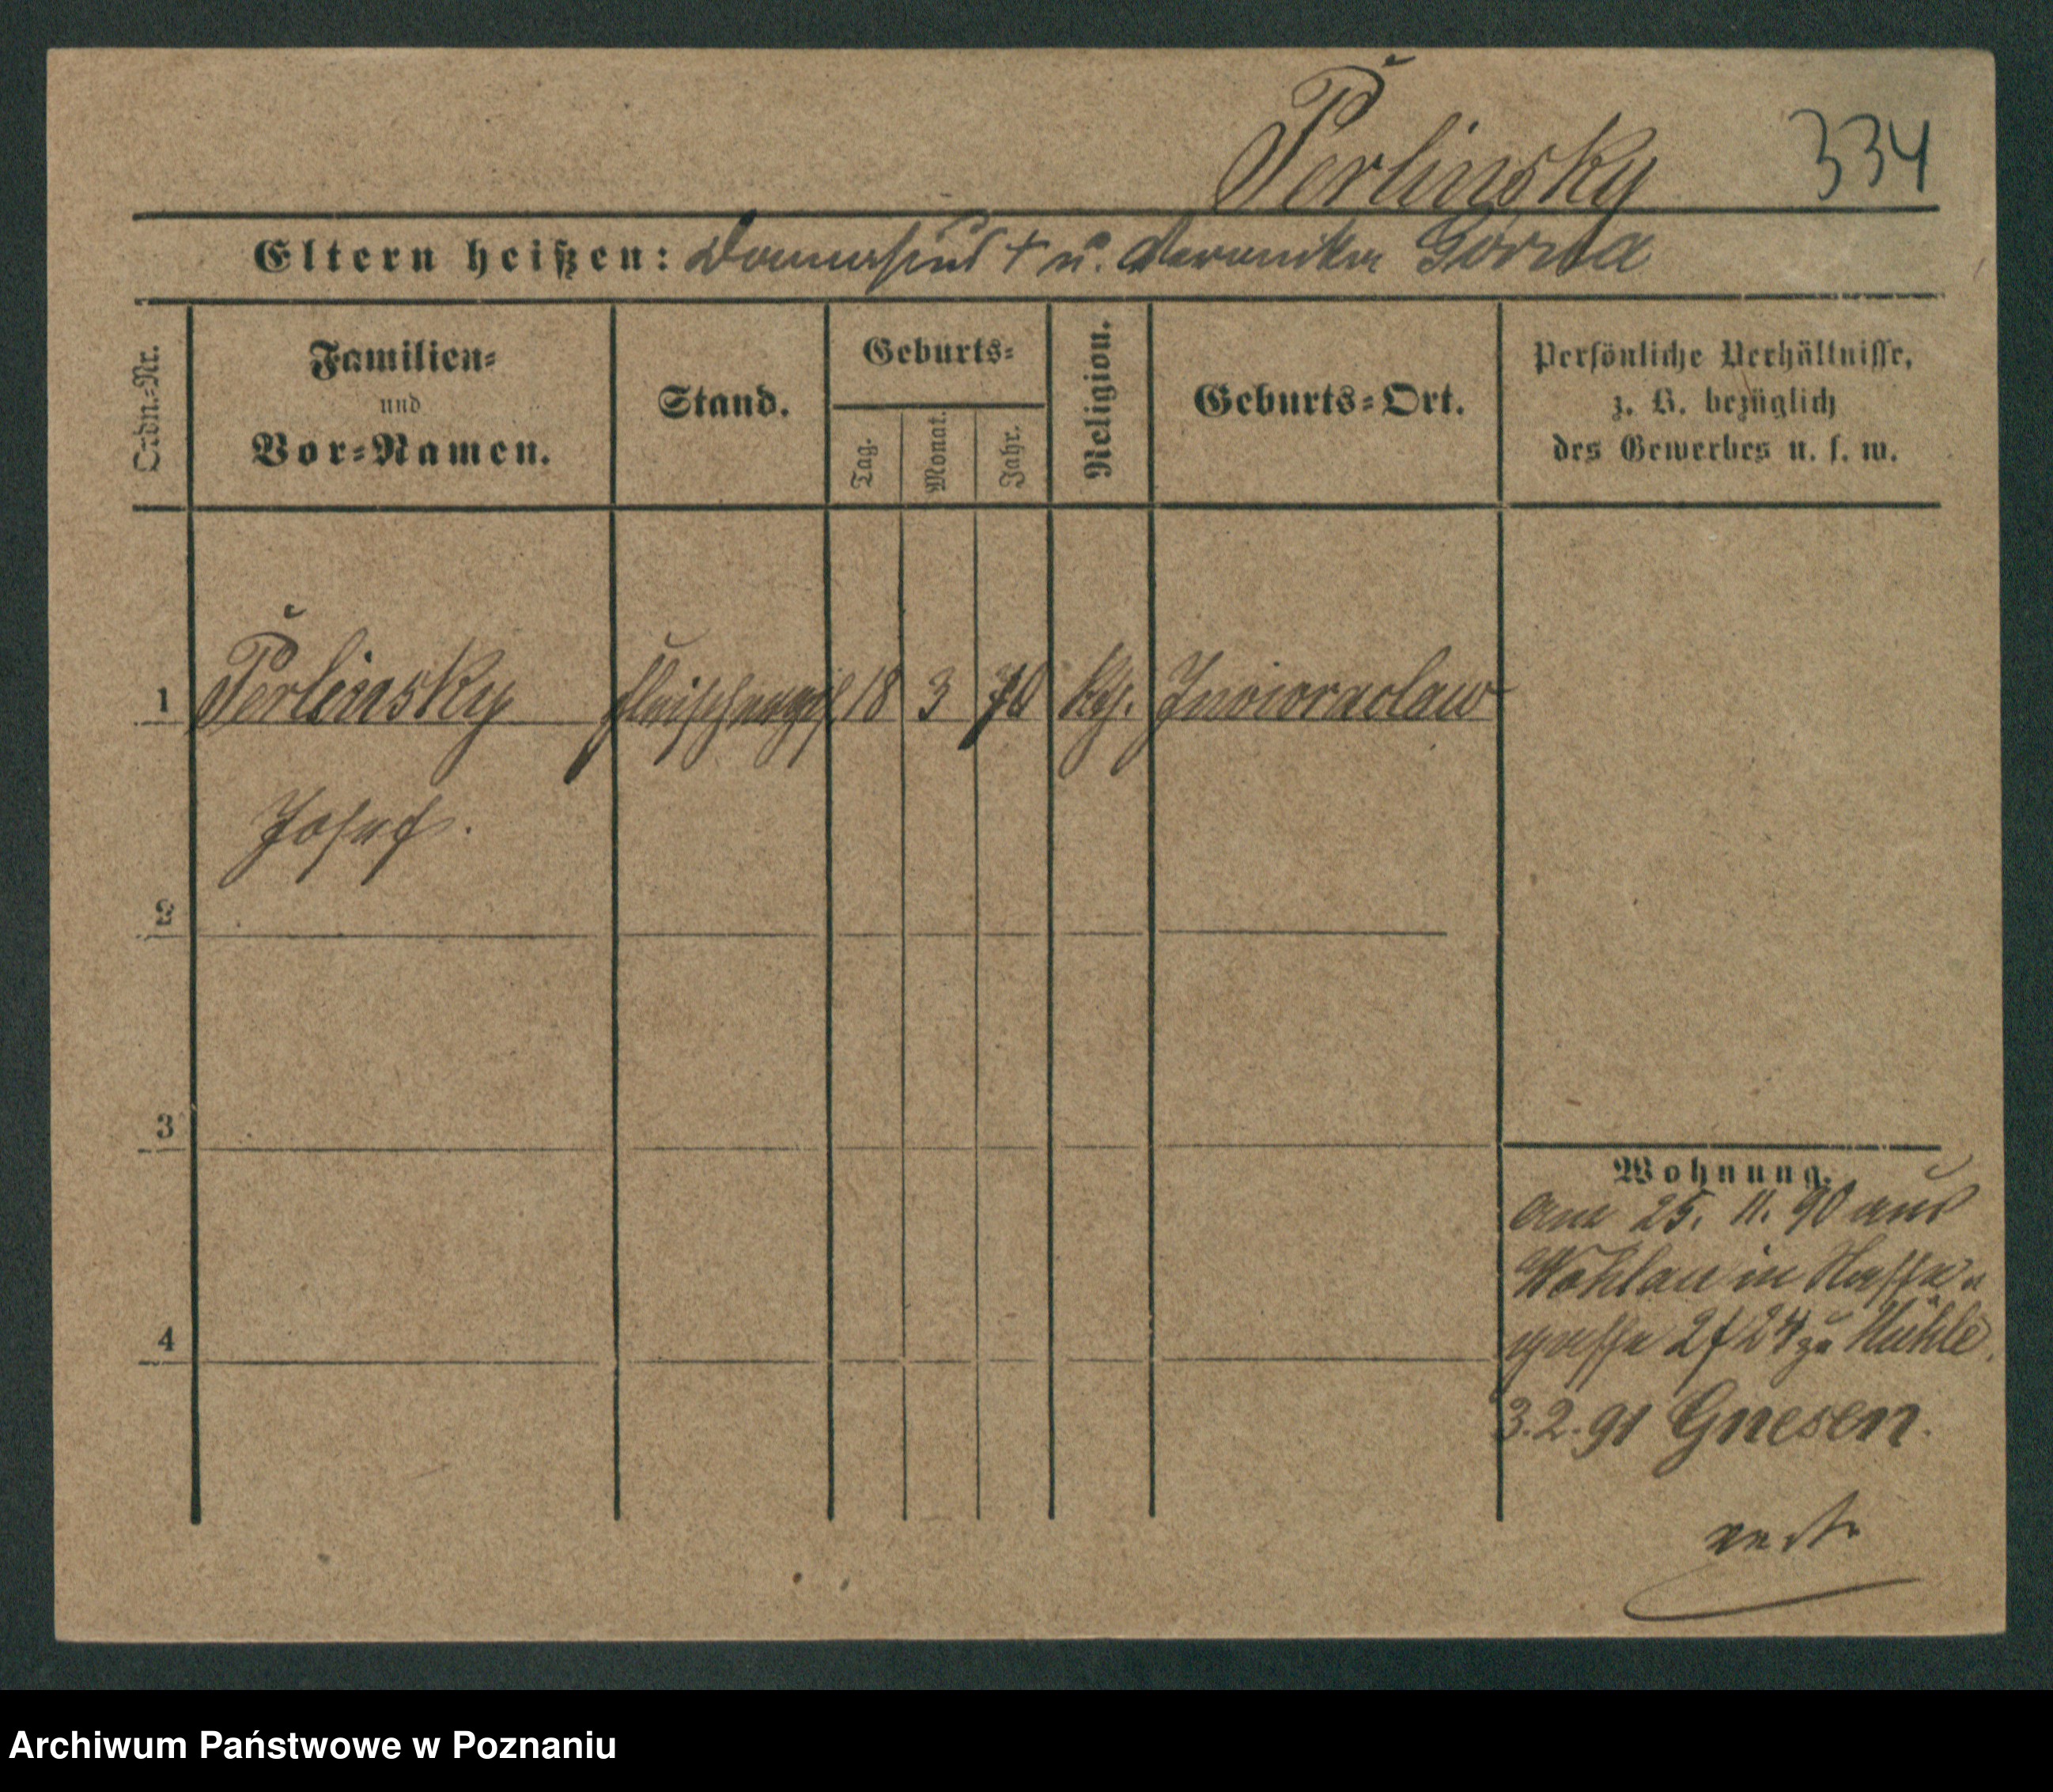 Perlinsky 334
Eltern heißen: Damasius † u. Veronika Gorna
Ordn.-Nr.
Familien-
und
Vor-Namen.
Stand.
Geburts-
Tag.
Monat.
Jahr.
Religion.
Geburts-Ort.
Persönliche Verhältnisse,
z. B. bezüglich
des Gewerbes u. s. w.
1 Perlinsky Fleischerges. 18 3 70 kth. Inowraclaw
Josef.
2
3
4
Wohnung.
Am 25. 11. 90 aus
Wohlau in
gasse 2 24 zu Mühle.
3.2.91 Gnesen.
verte
Archiwum Państwowe w Poznaniu